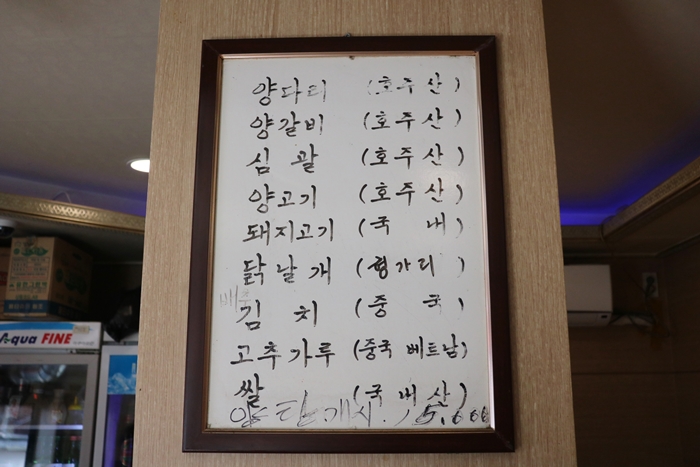 양다리 (호주산)
양갈비 (호주산)
심 괄 (호주산)
양고기 (호주산)
돼지고기 (국 내)
닭날개 (헝가리 )
배추
김 치 (중 국)
고추가루 (중국 베트남)
쌀 (국내산)
Aqua FINE